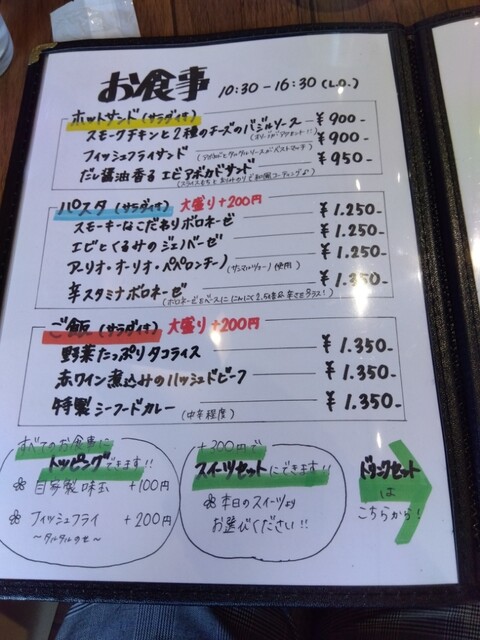 お食事 10:30-16:30 (L.O.)
ホットサンド (サラダ付き)
スモークチキンと2種のチーズのバジルソース ¥900-
フィッシュフライサンド ¥900-
だし醤油香る エビアボカドサンド ¥950-
パスタ (サラダ付き) 大盛り+200円
スモーキーなこだわりボロネーゼ ¥1.250-
エビとくるみのジェノベーゼ ¥1.250-
アーリオ・オーリオ・ペペロンチーノ ¥1.250-
辛スタミナボロネーゼ ¥1.350-
ご飯 (サラダ付き) 大盛り+200円
野菜たっぷりタコライス ¥1.350-
赤ワイン煮込みのハッシュドビーフ ¥1.350-
特製シーフードカレー (中辛程度) ¥1.350-
すべてのお食事に
トッピングできます!!
自家製味玉 +100円
フィッシュフライ +200円
〜タルタルのせ〜
+300円で
スイーツセットにできます!!
本日のスイーツより
お選びください!!
ドリンクセット
は
こちらから!